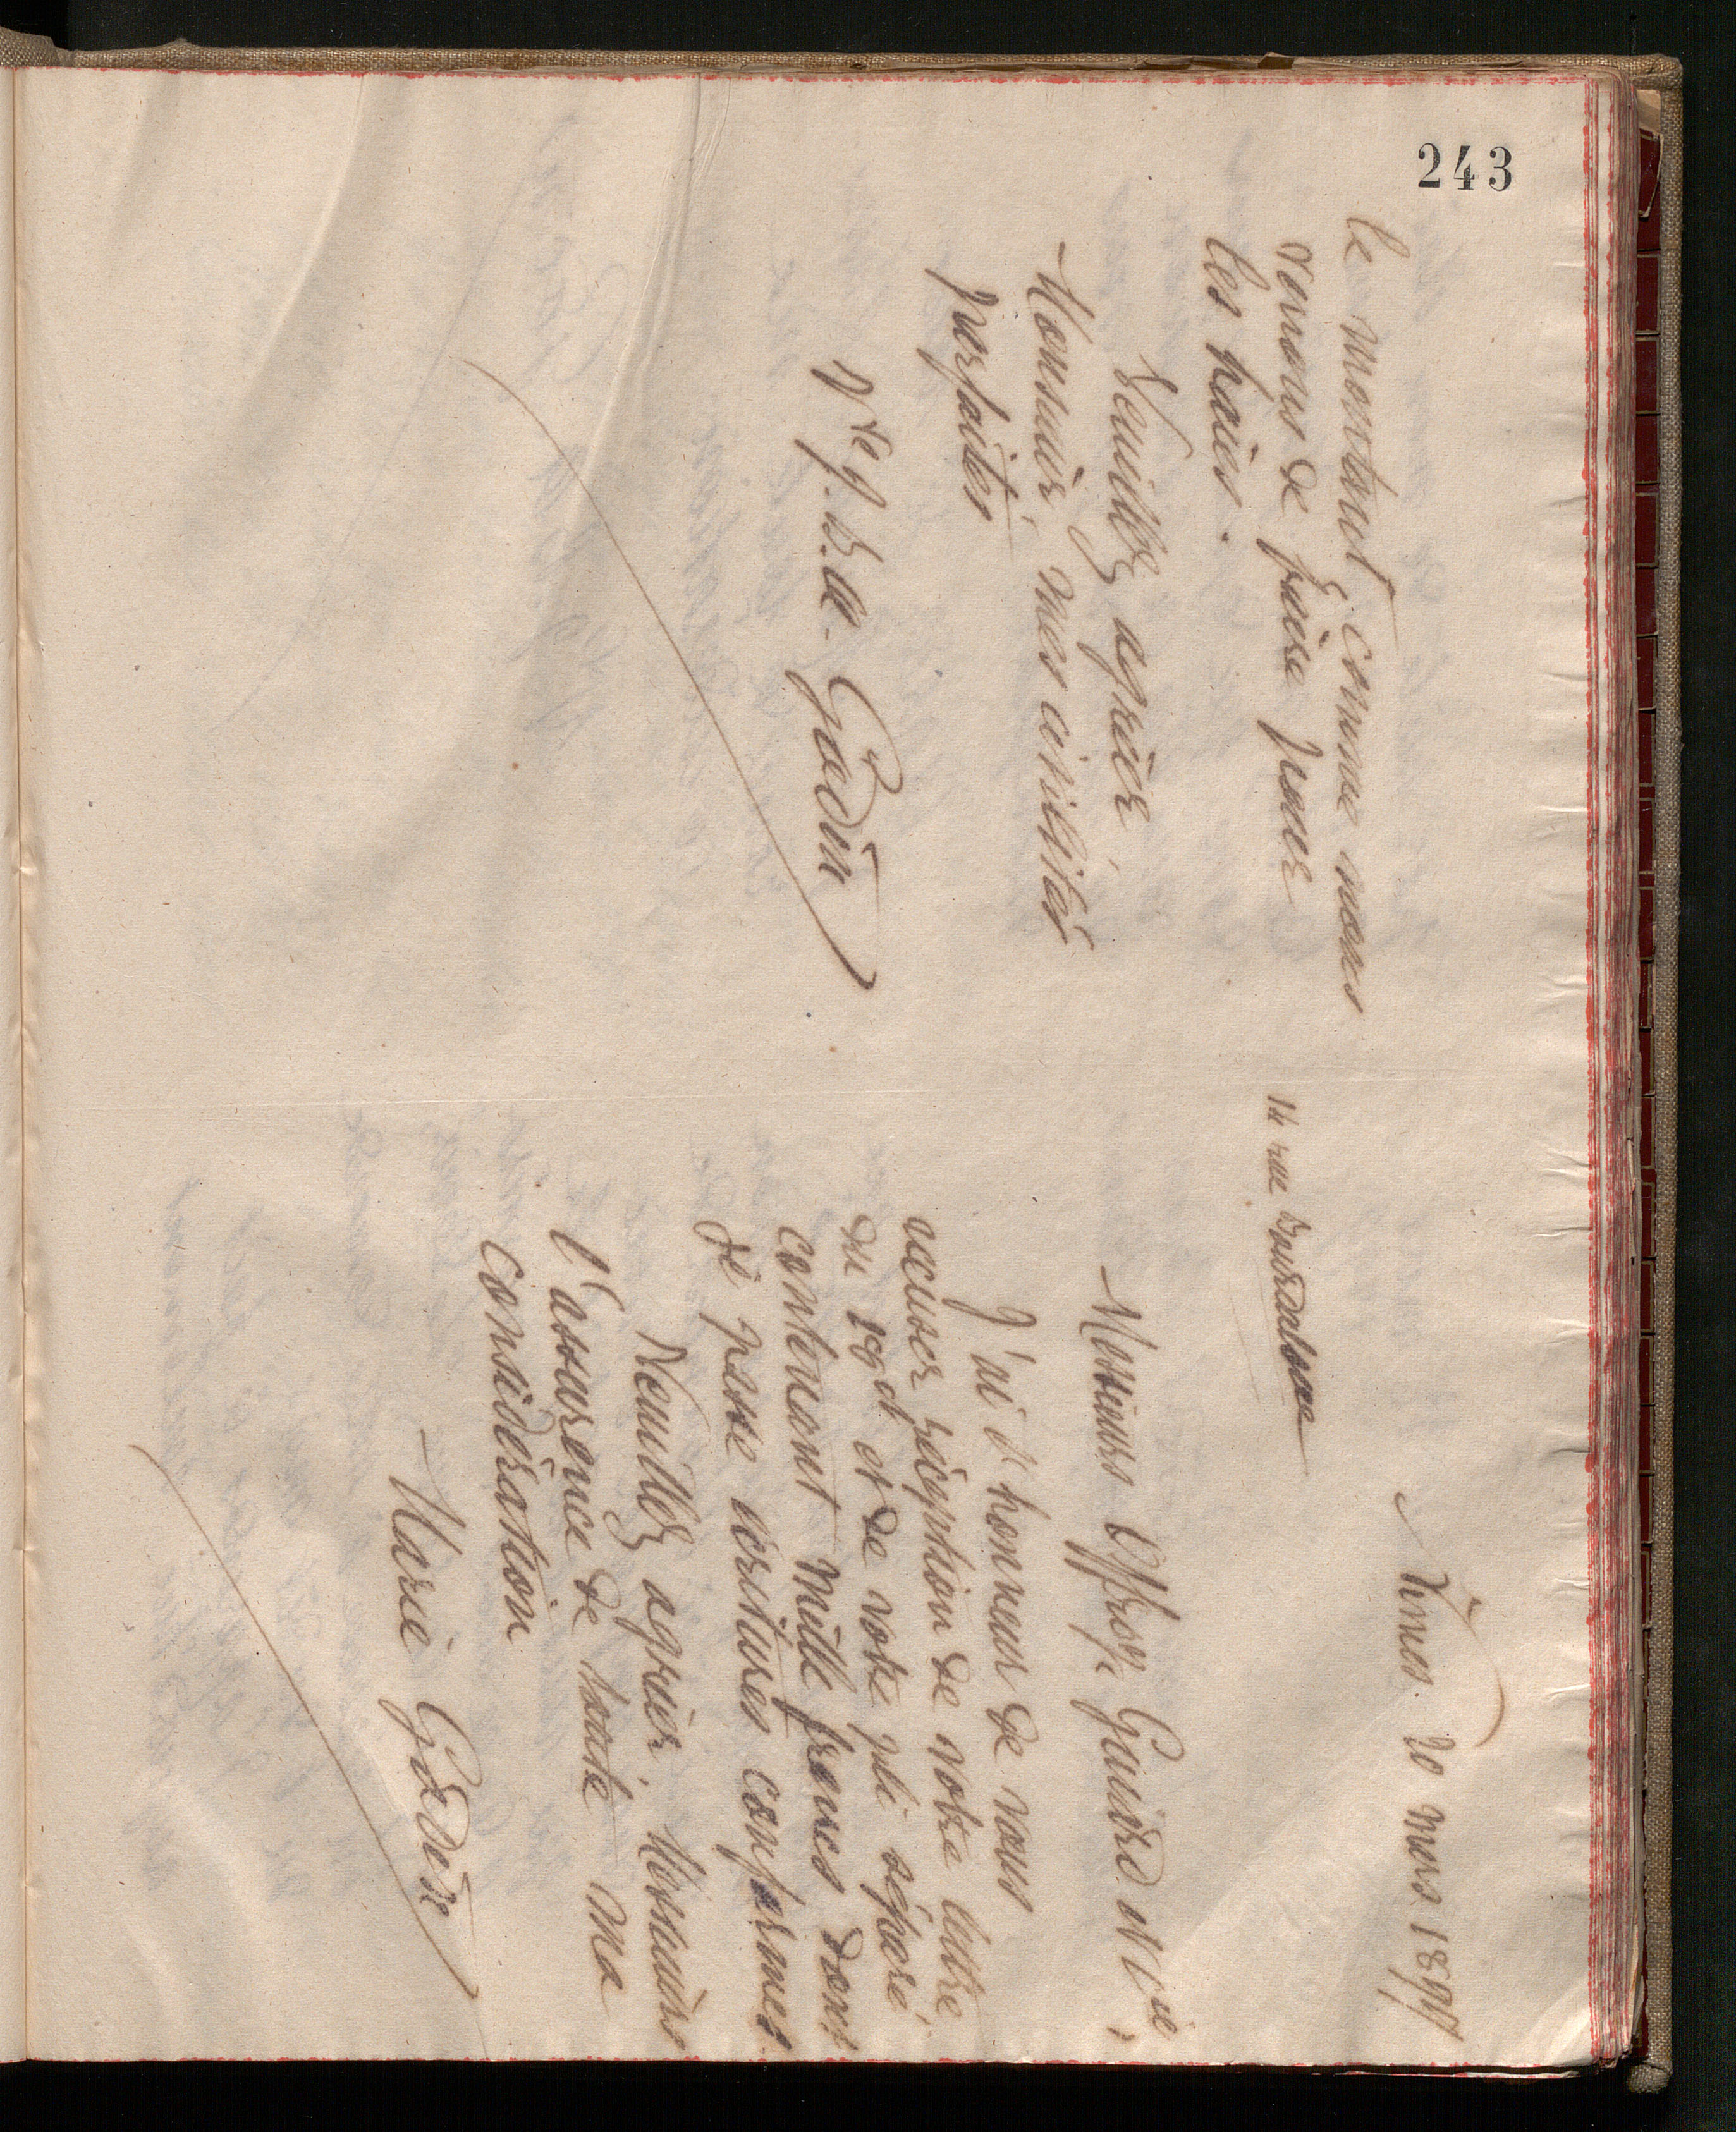 243
le montant, comme nous
venons de faire pour
les haies.
Veuillez agréer,
Monsieur, mes civilités
parfaites
Vve J.-B.-A. Godin
Nîmes. 20 mars 1897
14 rue Bourdaloue
Messieurs Offroy, Guiard et Cie,
J'ai l'honneur de vous
accuser réception de votre lettre
du 19 ct et de votre pli séparé
contenant mille francs dont
je passe écritures conformes.
Veuillez agréer, Messieurs
l'assurance de toute ma
considération
Marie Godin